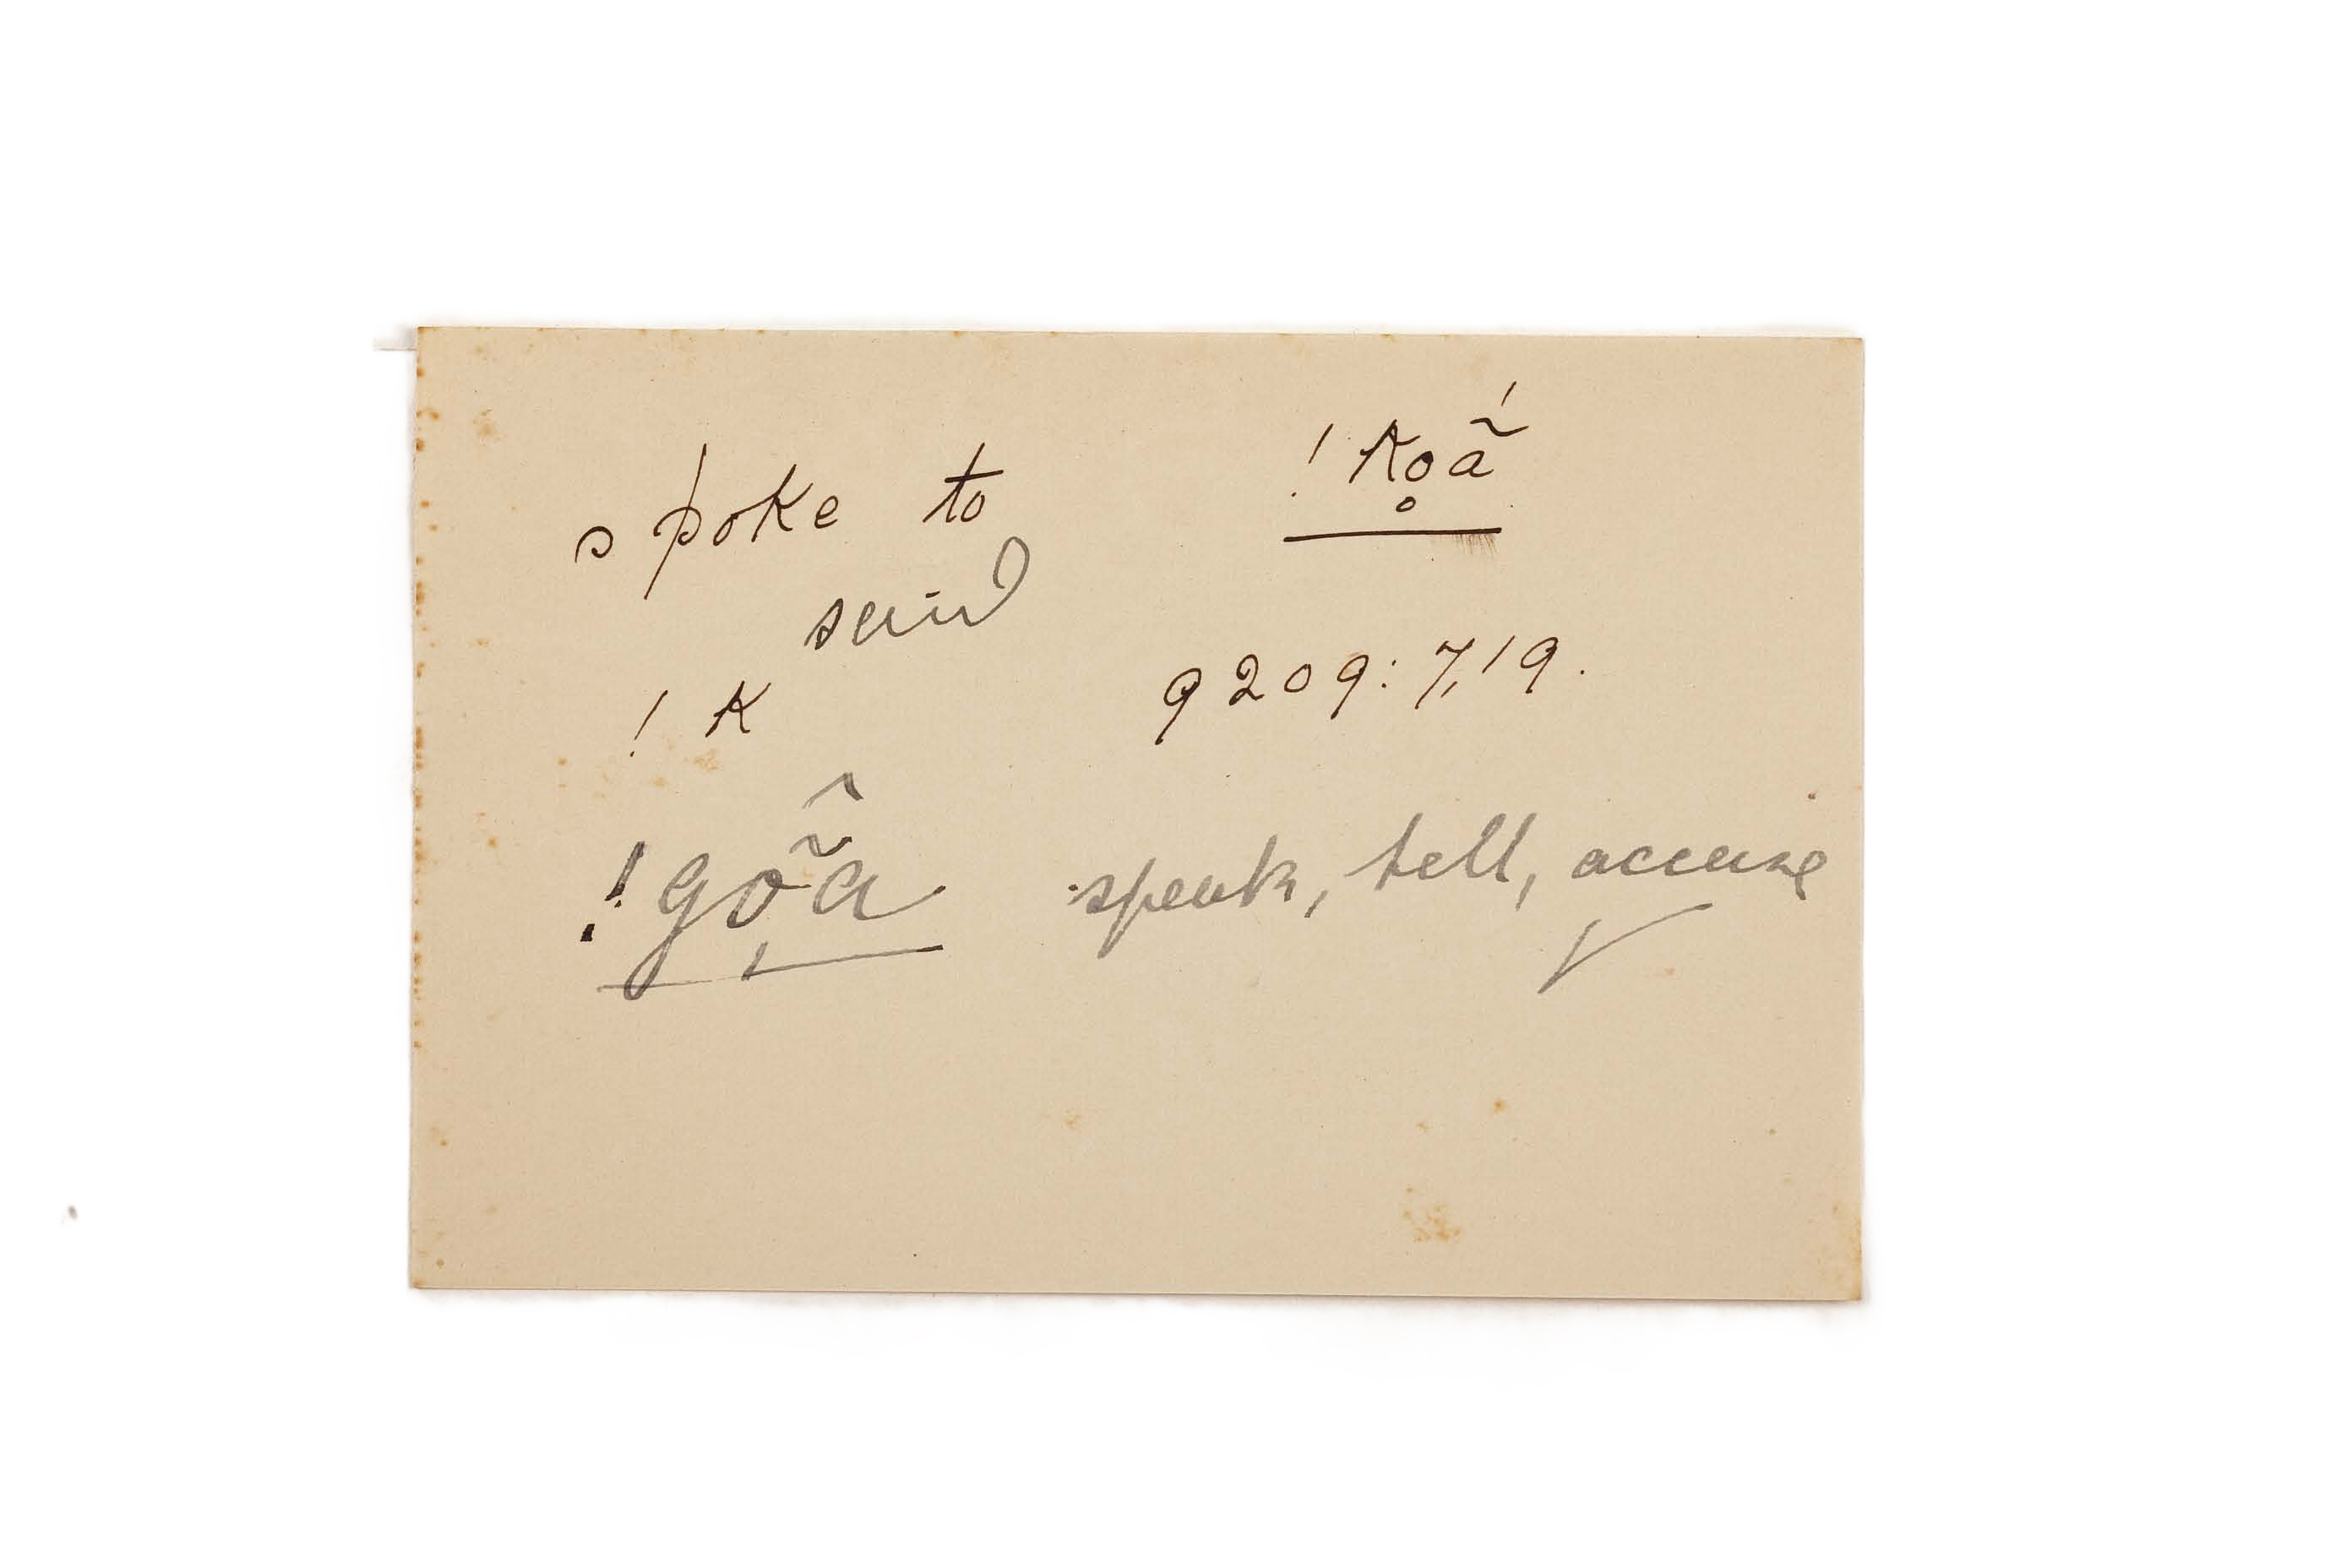 spoke to !ko̥ã́
said
!k 9209: 7,19.
!go̗ã̂ speak, tell, accuse